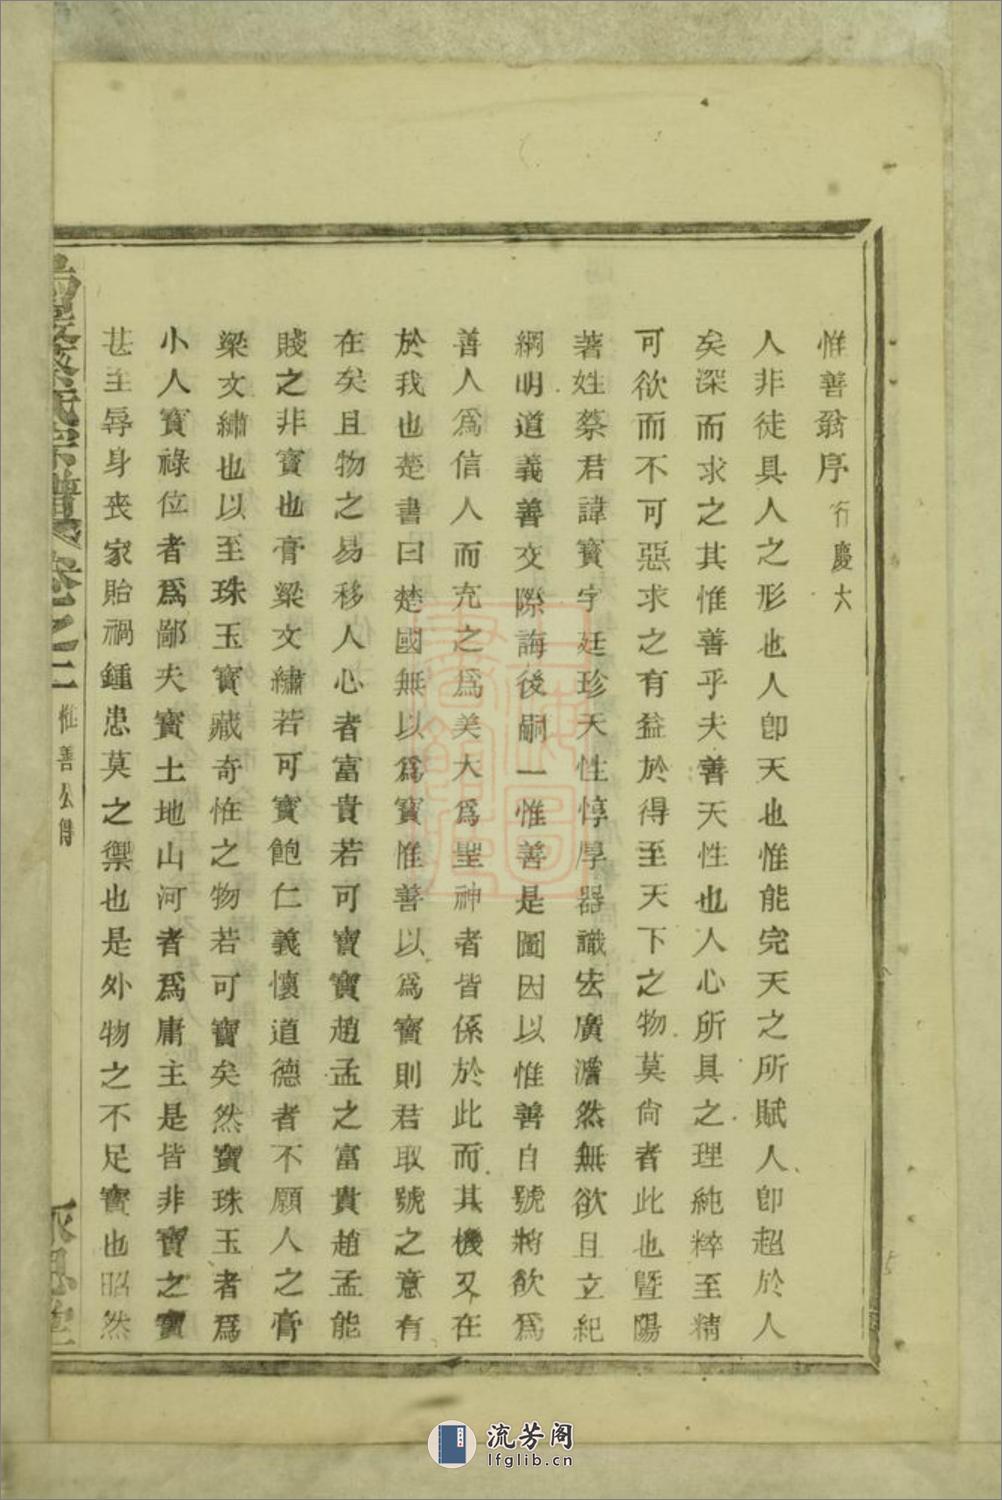 惟善翁序行慶大
人非徒具人之形也人卽天也惟能完天之所賦人卽超於人
矣深而求之其惟善乎夫善天性也人心所具之理純粹至精
可欲而不可惡求之有益於得至天下之物莫尙者此也暨陽
著姓蔡君諱寳字廷珍天性惇厚器識宏廣澹然無欲且立紀
綱明道義善交際誨後嗣一惟善是圖因以惟善自號將欲爲
善人爲信人而充之爲美大爲聖神者皆係於此而其機又在
於我也楚書曰楚國無以爲寳惟善以爲寳則君取號之意有
在矣且物之易移人心者富貴若可寳寳趙孟之富貴趙孟能
賤之非寳也膏粱文繡若可寳飽仁義懷道德者不願人之膏
粱文繡也以至珠玉寳藏奇怪之物若可寳矣然寳珠玉者爲
小人寳祿位者爲鄙夫寳土地山河者爲庸主是皆非寳之寳
甚至辱身喪家貽禍鍾患莫之禦也是外物之不足寳也昭然
蔡氏宗譜 卷之二 惟善公傳
流芳阁
lfglib.cn